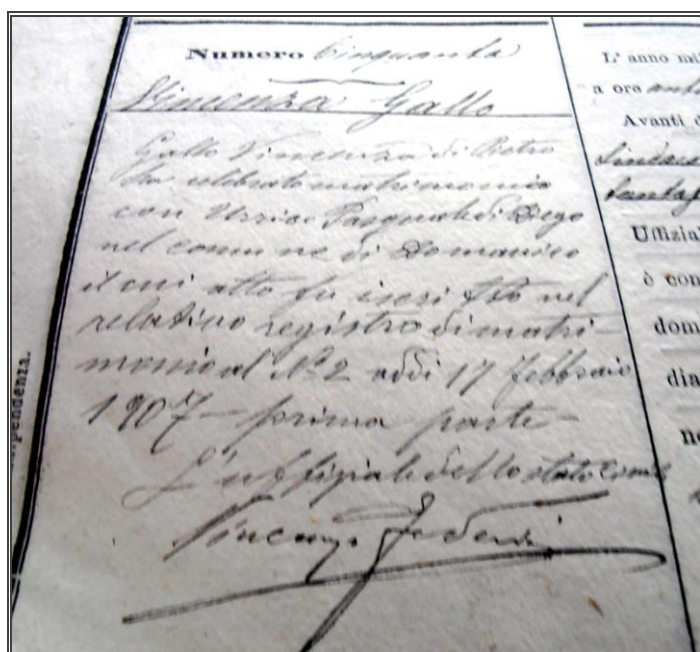 Numero Cinquanta
Vincenza Gallo
Gallo Vincenza di Pietro
ha celebrato matrimonio
con Pasquale di Diego
nel comune di Domanico
il cui atto fu iscritto nel
relativo registro di matri-
monio al N° 2 addi 17 febbraio
1907 - prima parte -
L'uffiziale dello stato Civile
Vincenzo
L' anno mil
a ore
Avanti d
Sindaco
Uffizial
è con
donn
dia
ipendenza.